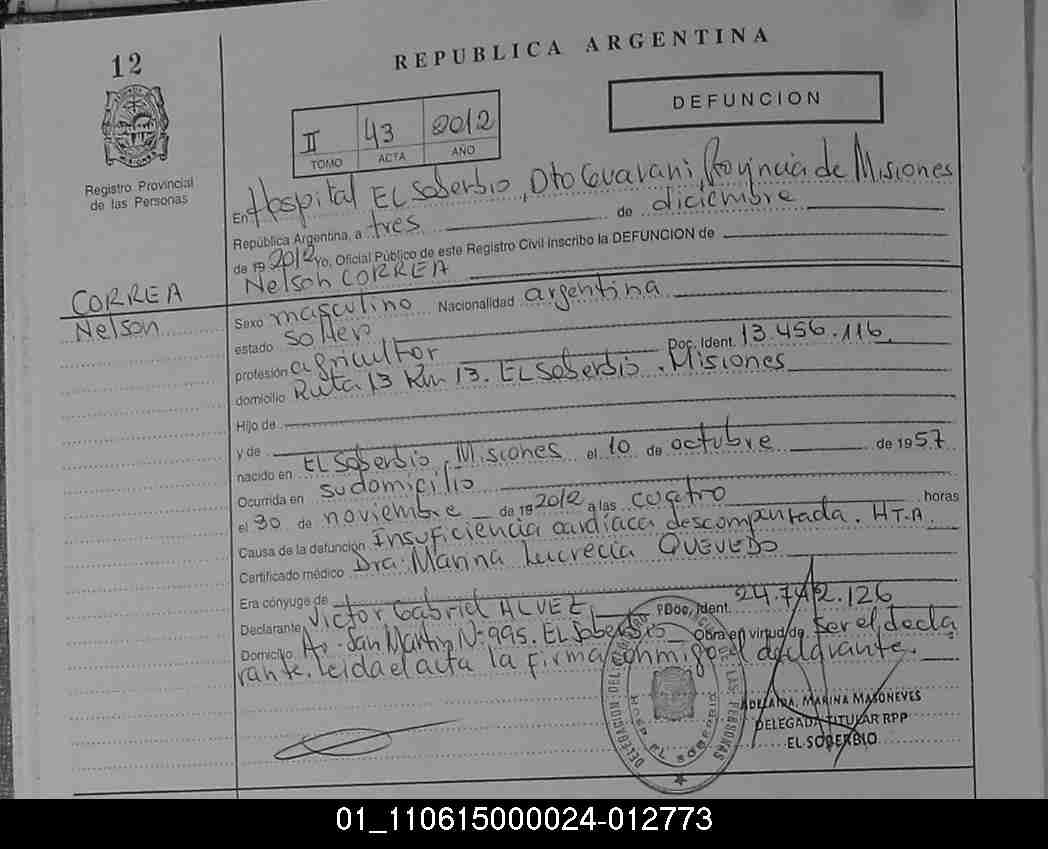 12
REPUBLICA ARGENTINA
DEFUNCION
II 43 2012
TOMO ACTA AÑO
Registro Provincial
de las Personas
En Hospital EL Soberbio, Dto Guarani, Provincia de Misiones
República Argentina, a tres de diciembre
de 19 2012 Yo, Oficial Público de este Registro Civil Inscribo la DEFUNCION de
Nelson CORREA
CORREA
Nelson
Sexo masculino Nacionalidad argentina
estado soltero
profesión agricultor Doc. Ident. 13.456.116.
domicilio Ruta 13 Km 13. EL Soberbio. Misiones
Hijo de
y de
nacido en EL Soberbio, Misiones el 10 de octubre de 1957
Ocurrida en su domicilio
el 30 de noviembre de 19 2012 a las cuatro horas
Causa de la defunción Insuficiencia cardiaca descompensada. H.T.A.
Certificado médico Dra. Marina Lucrecia QUEVEDO
Era cónyuge de
Declarante Victor Gabriel ALVEZ Doc. Ident. 24.742.126
Domicilio Av. San Martin N° 995. EL Soberbio Obra en virtud de ser el decla
rante. Leida el acta la firma conmigo el declarante.
DELEGACION DEL REGISTRO PROVINCIAL DE LAS PERSONAS
HOSP. EL SOBERBIO
ADELAIDA, MARINA MASONEVES
DELEGADA TITULAR RPP
EL SOBERBIO
01_110615000024-012773